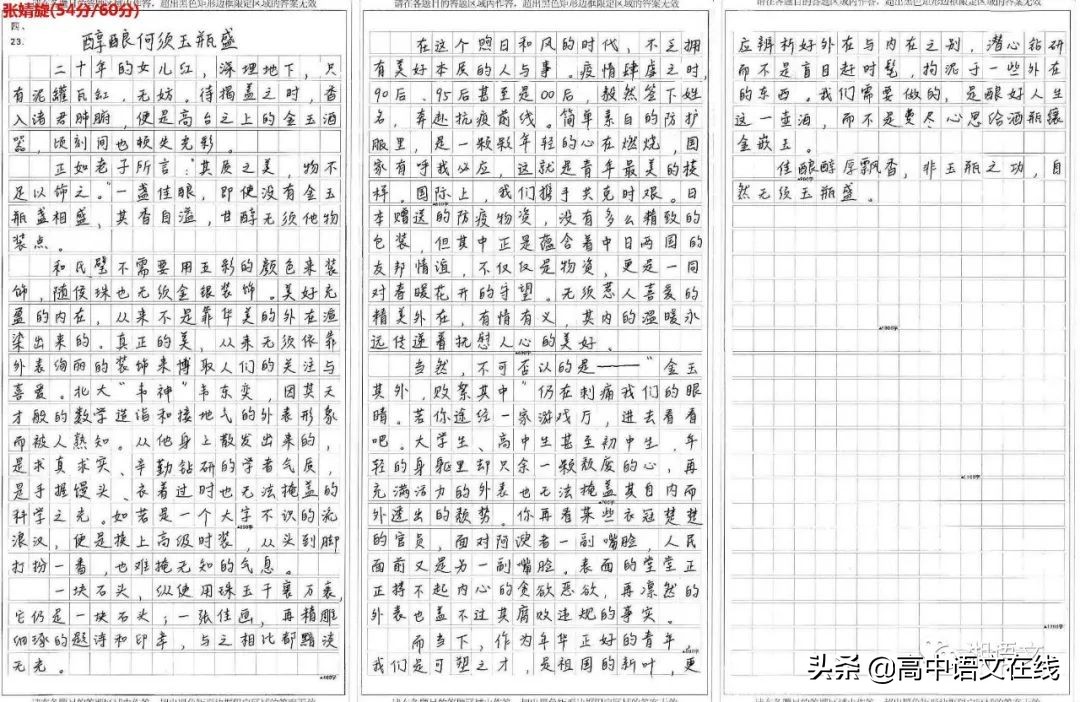 请在各题目的答题区域内作答，超出黑色矩形边框限定区域的答案无效
请在各题目的答题区域内作答，超出黑色矩形边框限定区域的答案无效
张婧旋(54分/60分)
四、
23.
醇酿何须玉瓶盛
二十年的女儿红，深埋地下，只
有泥罐瓦缸，无妨。待揭盖之时，香
入诸君肺腑，便是高台之上的金玉酒
器，顷刻间也顿失光彩。
正如老子所言："其质之美，物不
足以饰之。"一盏佳酿，即使没有金玉
瓶盏相盛，其香自溢，甘醇无须他物
装点。
和氏璧不需要用五彩的颜色来装
饰，随侯珠也无须金银装饰。美好充
盈的内在，从来不是靠华美的外在渲
染出来的。真正的美，从来无须依靠
外表绚丽的装饰来博取人们的关注与
喜爱。北大"韦神"韦东奕，因其天
才般的数学造诣和接地气的外表形象
而被人熟知。从他身上散发出来的，
是求真求实、辛勤钻研的学者气质，
是手握馒头、衣着过时也无法掩盖的
科学之光。如若是一个大字不识的流
浪汉，便是换上高级时装，从头到脚
打扮一番，也难掩无知的气息。
一块石头，纵使用珠玉千裹万裹，
它仍是一块石头；一张佳画，再精雕
细琢的题诗和印章，与之相比都黯淡
无光。
在这个煦日和风的时代，不乏拥
有美好本质的人与事。疫情肆虐之时，
90后、95后甚至是00后，毅然签下姓
名，奔赴抗疫前线。简单素白的防护
服里，是一颗颗年轻的心在燃烧，国
家有呼我必应，这就是青年最美的模
样。国际上，我们携手共克时艰。日
本赠送的防疫物资，没有多么精致的
包装，但其中正是蕴含着中日两国的
友邦情谊，不仅仅是物资，更是一同
对春暖花开的守望。无须惹人喜爱的
精美外在，有情有义，其内的温暖永
远传递着抚慰人心的美好。
当然，不可否认的是——"金玉
其外，败絮其中"仍在刺痛我们的眼
睛。若你途经一家游戏厅，进去看看
吧。大学生、高中生甚至初中生，年
轻的身躯里却只余一颗颓废的心，再
充满活力的外表也无法掩盖其自内而
外透出的颓势。你再看某些衣冠楚楚
的官员，面对阿谀者一副嘴脸，人民
面前又是另一副嘴脸。表面的堂堂正
正挡不起内心的贪欲恶欲，再凛然的
外表也盖不过其腐败违规的事实。
而当下，作为年华正好的青年，
我们是可塑之才，是祖国的新叶，更
应辨析好外在与内在之别，潜心钻研
而不是盲目赶时髦，拘泥于一些外在
的东西。我们需要做的，是酿好人生
这一壶酒，而不是更尽心思给酒瓶镶
金嵌玉。
佳酿醇厚飘香，非玉瓶之功，自
然无须玉瓶盛。
头条 @高中语文在线